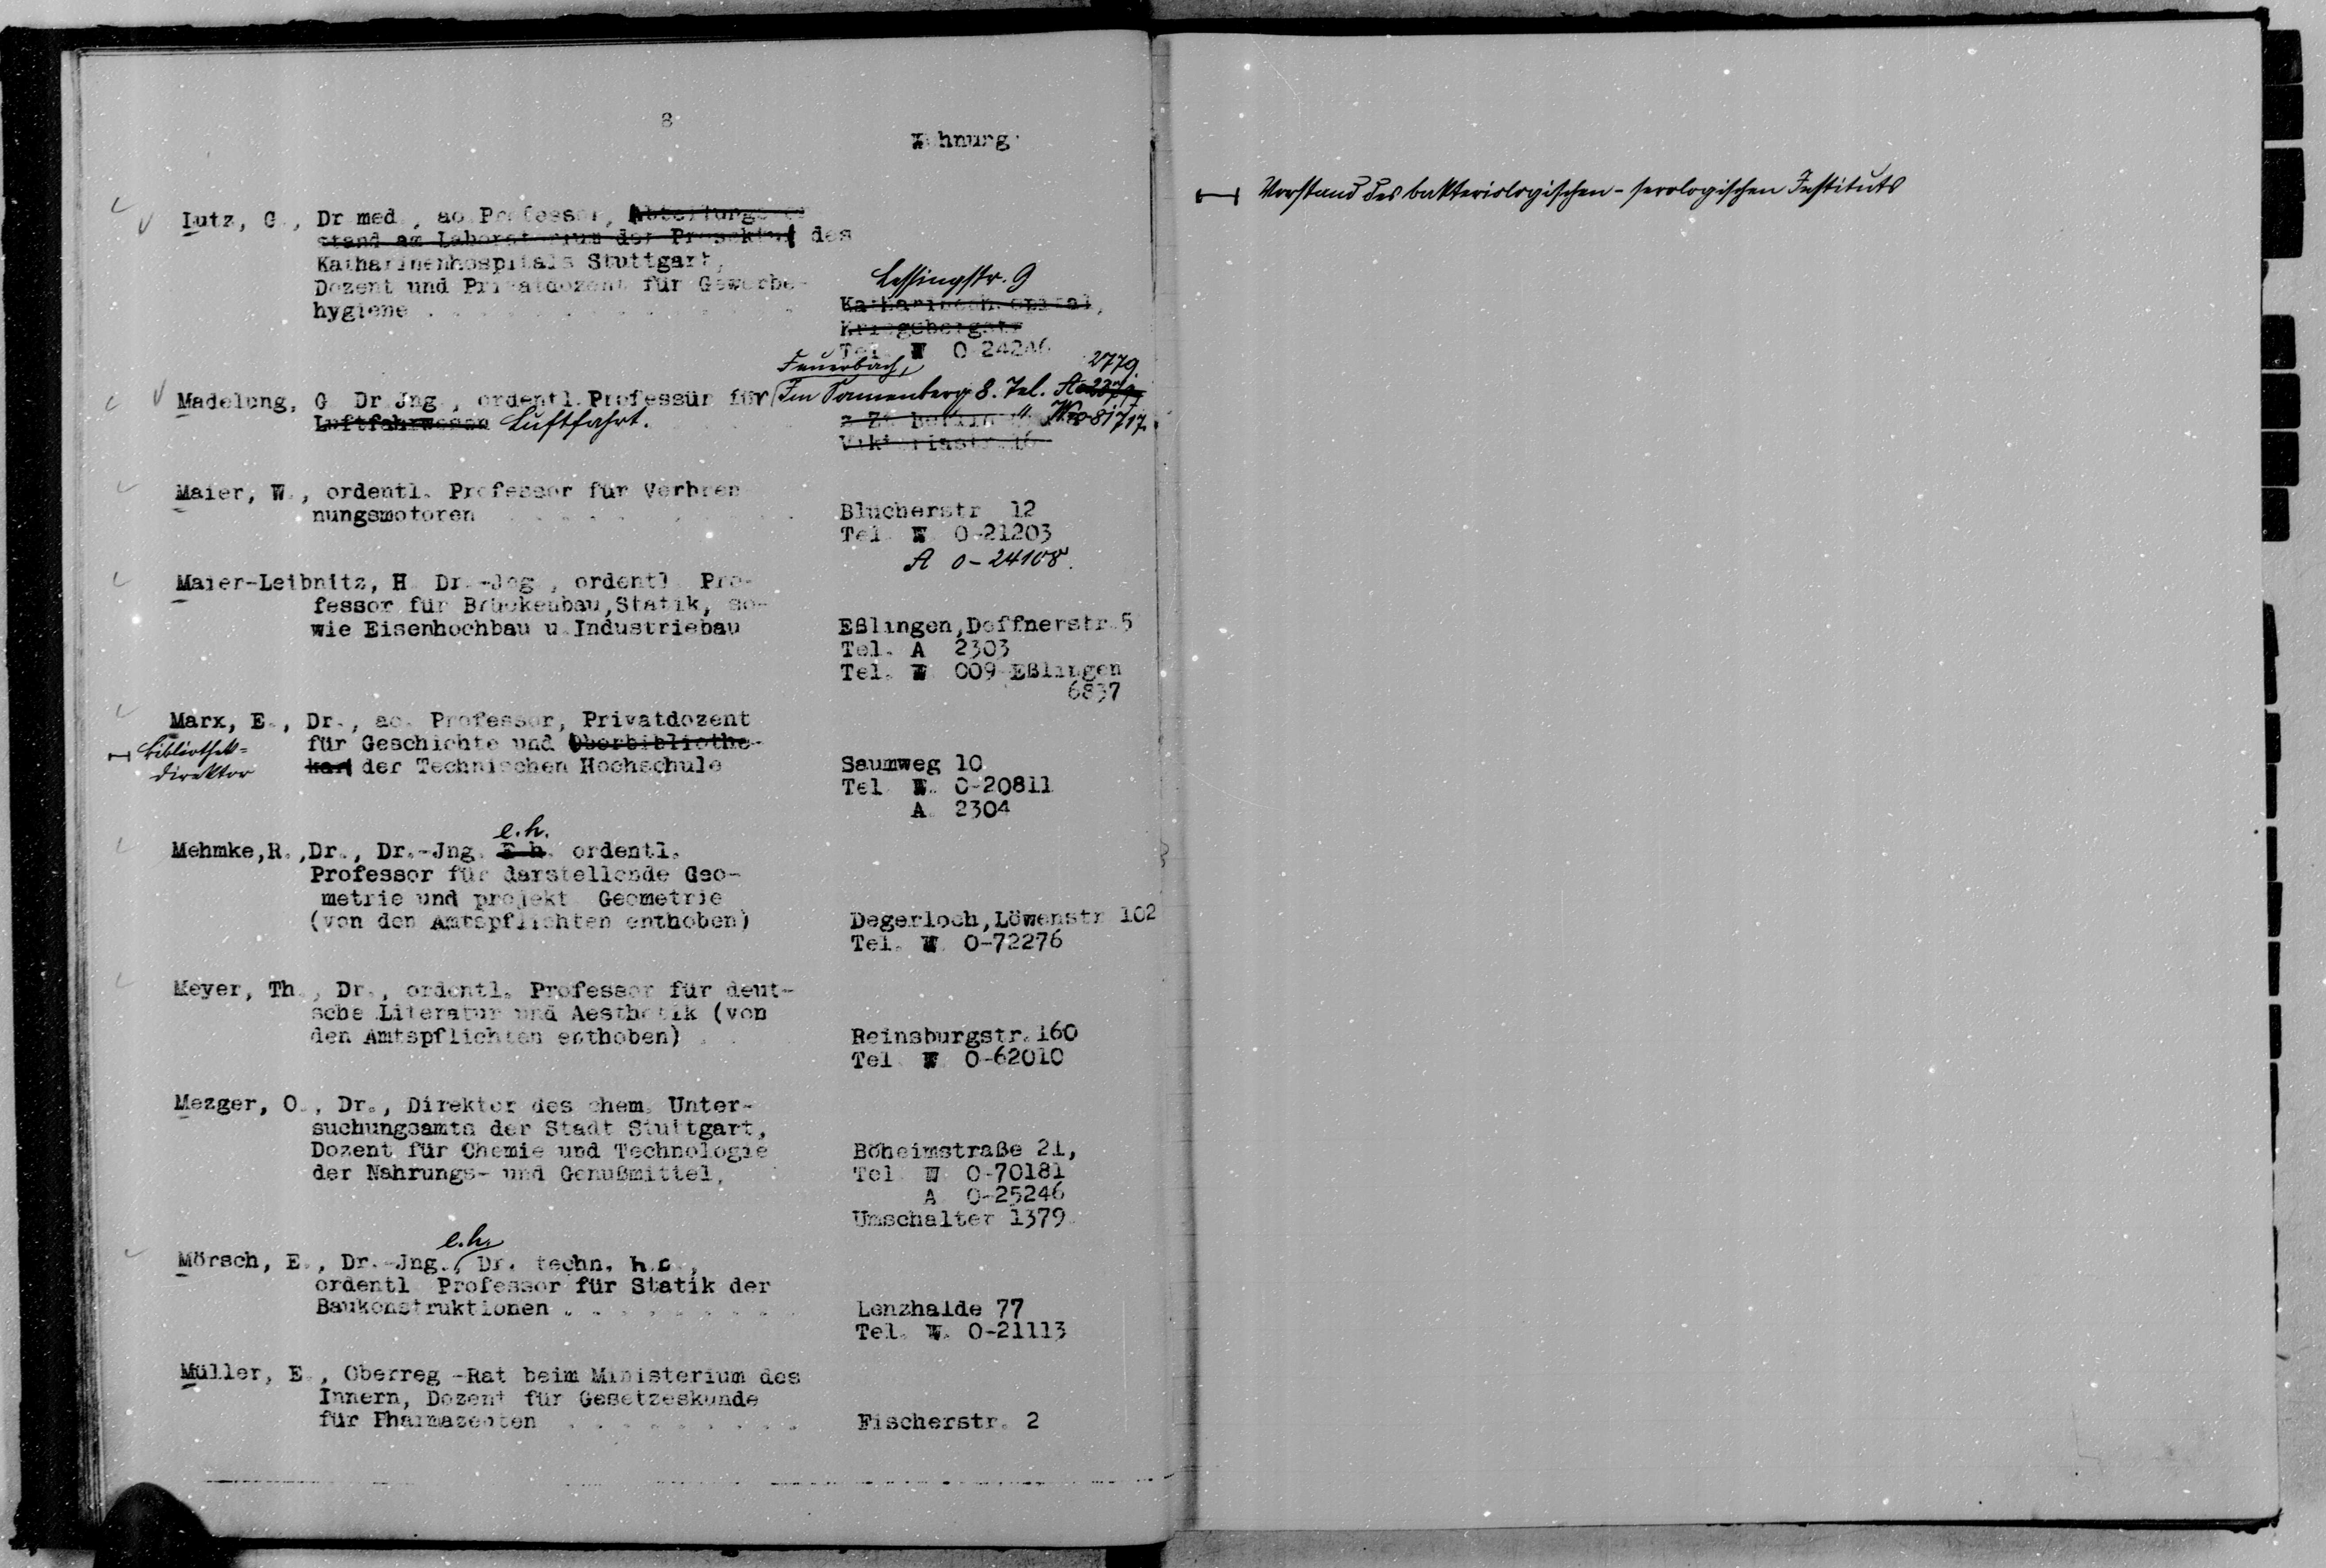 8
Wohnung
Lutz, G., Dr med., ao Professor, Abteilungsvor
stand am Laboratorium der Prosektur des
Katharinenhospitals Stuttgart,
Dozent und Privatdozent für Gewerbe-
hygiene
Lessingstr. 9
Katharinenhospital,
Kriegsbergstr
Tel. W 0-24246
Feuerbach,
2779.
Madelung, G Dr Jng., ordentl. Professur für
Im Tannenberg 8. Tel. A
Luftfahrwesen Luftfahrt.
z Zt Berlin W 0-81717.
Viktoriastr. 
Maier, W., ordentl. Professor für Verbren
nungsmotoren
Blücherstr 12
Tel. W. 0-21203
A 0-24108.
Maier-Leibnitz, H Dr.-Jng., ordentl Pro-
fessor für Brückenbau, Statik, so-
wie Eisenhochbau u. Industriebau
Eßlingen, Deffnerstr. 5
Tel. A 2303
Tel. W 009 Eßlingen
6837
Marx, E., Dr., ao. Professor, Privatdozent
für Geschichte und Oberbibliothe-
kar der Technischen Hochschule
Bibliothek-
direktor
Saumweg 10
Tel W. 0-20811
A. 2304
e.h.
Mehmke, R., Dr., Dr.-Jng. E h. ordentl.
Professor für darstellende Geo-
metrie und projekt Geometrie
(von den Amtspflichten enthoben)
Degerloch, Löwenstr 102
Tel. W. 0-72276
Meyer, Th., Dr., ordentl. Professor für deut-
sche Literatur und Aesthetik (von
den Amtspflichten enthoben)
Reinsburgstr. 160
Tel W 0-62010
Mezger, O., Dr., Direktor des chem. Unter-
suchungsamts der Stadt Stuttgart,
Dozent für Chemie und Technologie
der Nahrungs- und Genußmittel,
Böheimstraße 21,
Tel W 0-70181
A 0-25246
Umschalter 1379.
e.h.
Mörsch, E., Dr.-Jng., Dr. techn. h.c.,
ordentl Professor für Statik der
Baukonstruktionen
Lenzhalde 77
Tel. W. 0-21113
Müller, E., Oberreg -Rat beim Ministerium des
Innern, Dozent für Gesetzeskunde
für Pharmazeuten
Fischerstr. 2
Vorstand des bakteriologischen-serologischen Instituts